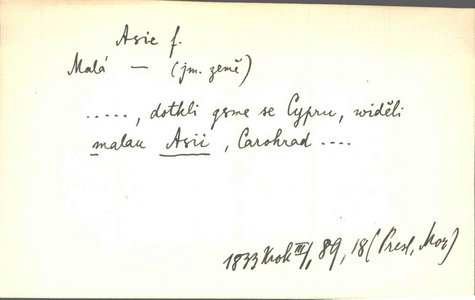 Asie f.
Malá — (jm. země)
....., dotkli gsme se Cypru, widěli
malau Asii, Carohrad ....
1833 Krok III/1, 89, 18 (Presl, Moř)